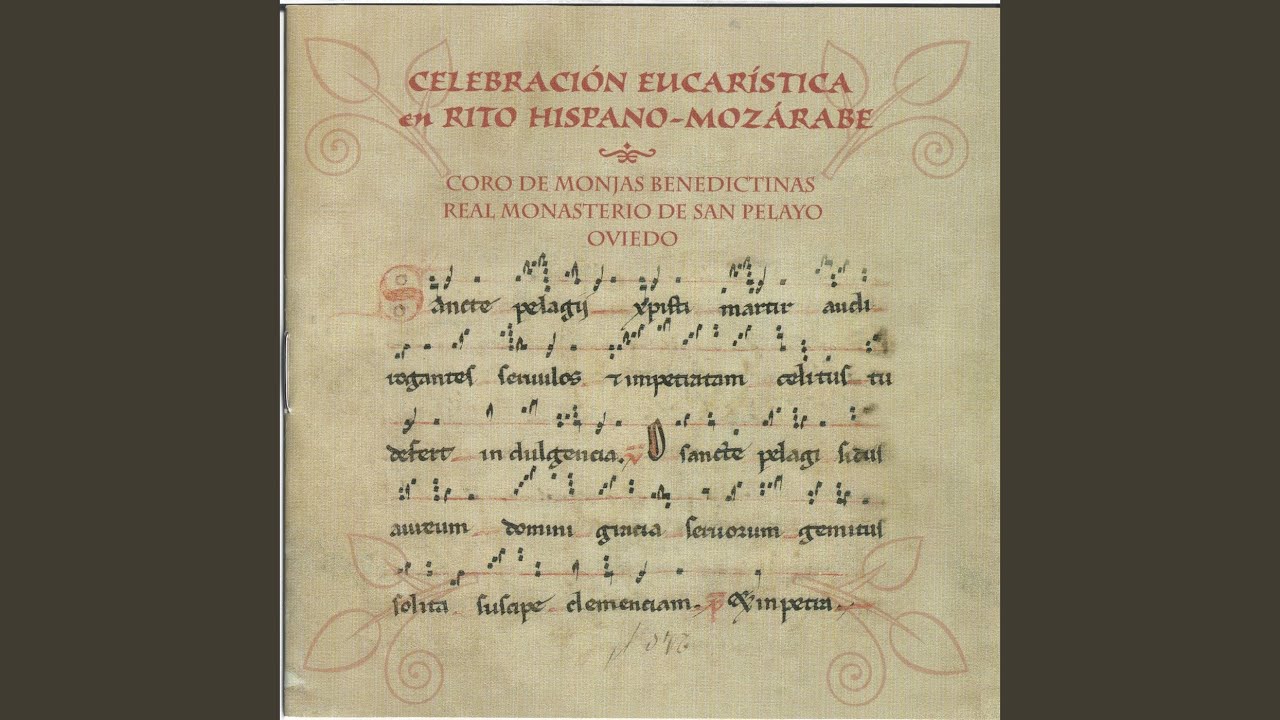 CELEBRACIÓN EUCARÍSTICA
en RITO HISPANO-MOZÁRABE
CORO DE MONJAS BENEDICTINAS
REAL MONASTERIO DE SAN PELAYO
OVIEDO
Sancte pelagij xpisti martir audi
rogantes seruulos & impetratam celitus tu
defert indulgencia. V O sancte pelagi sidus
aureum domini gracia seruorum gemitus
solita suscipe clemenciam. P Et inpetra.